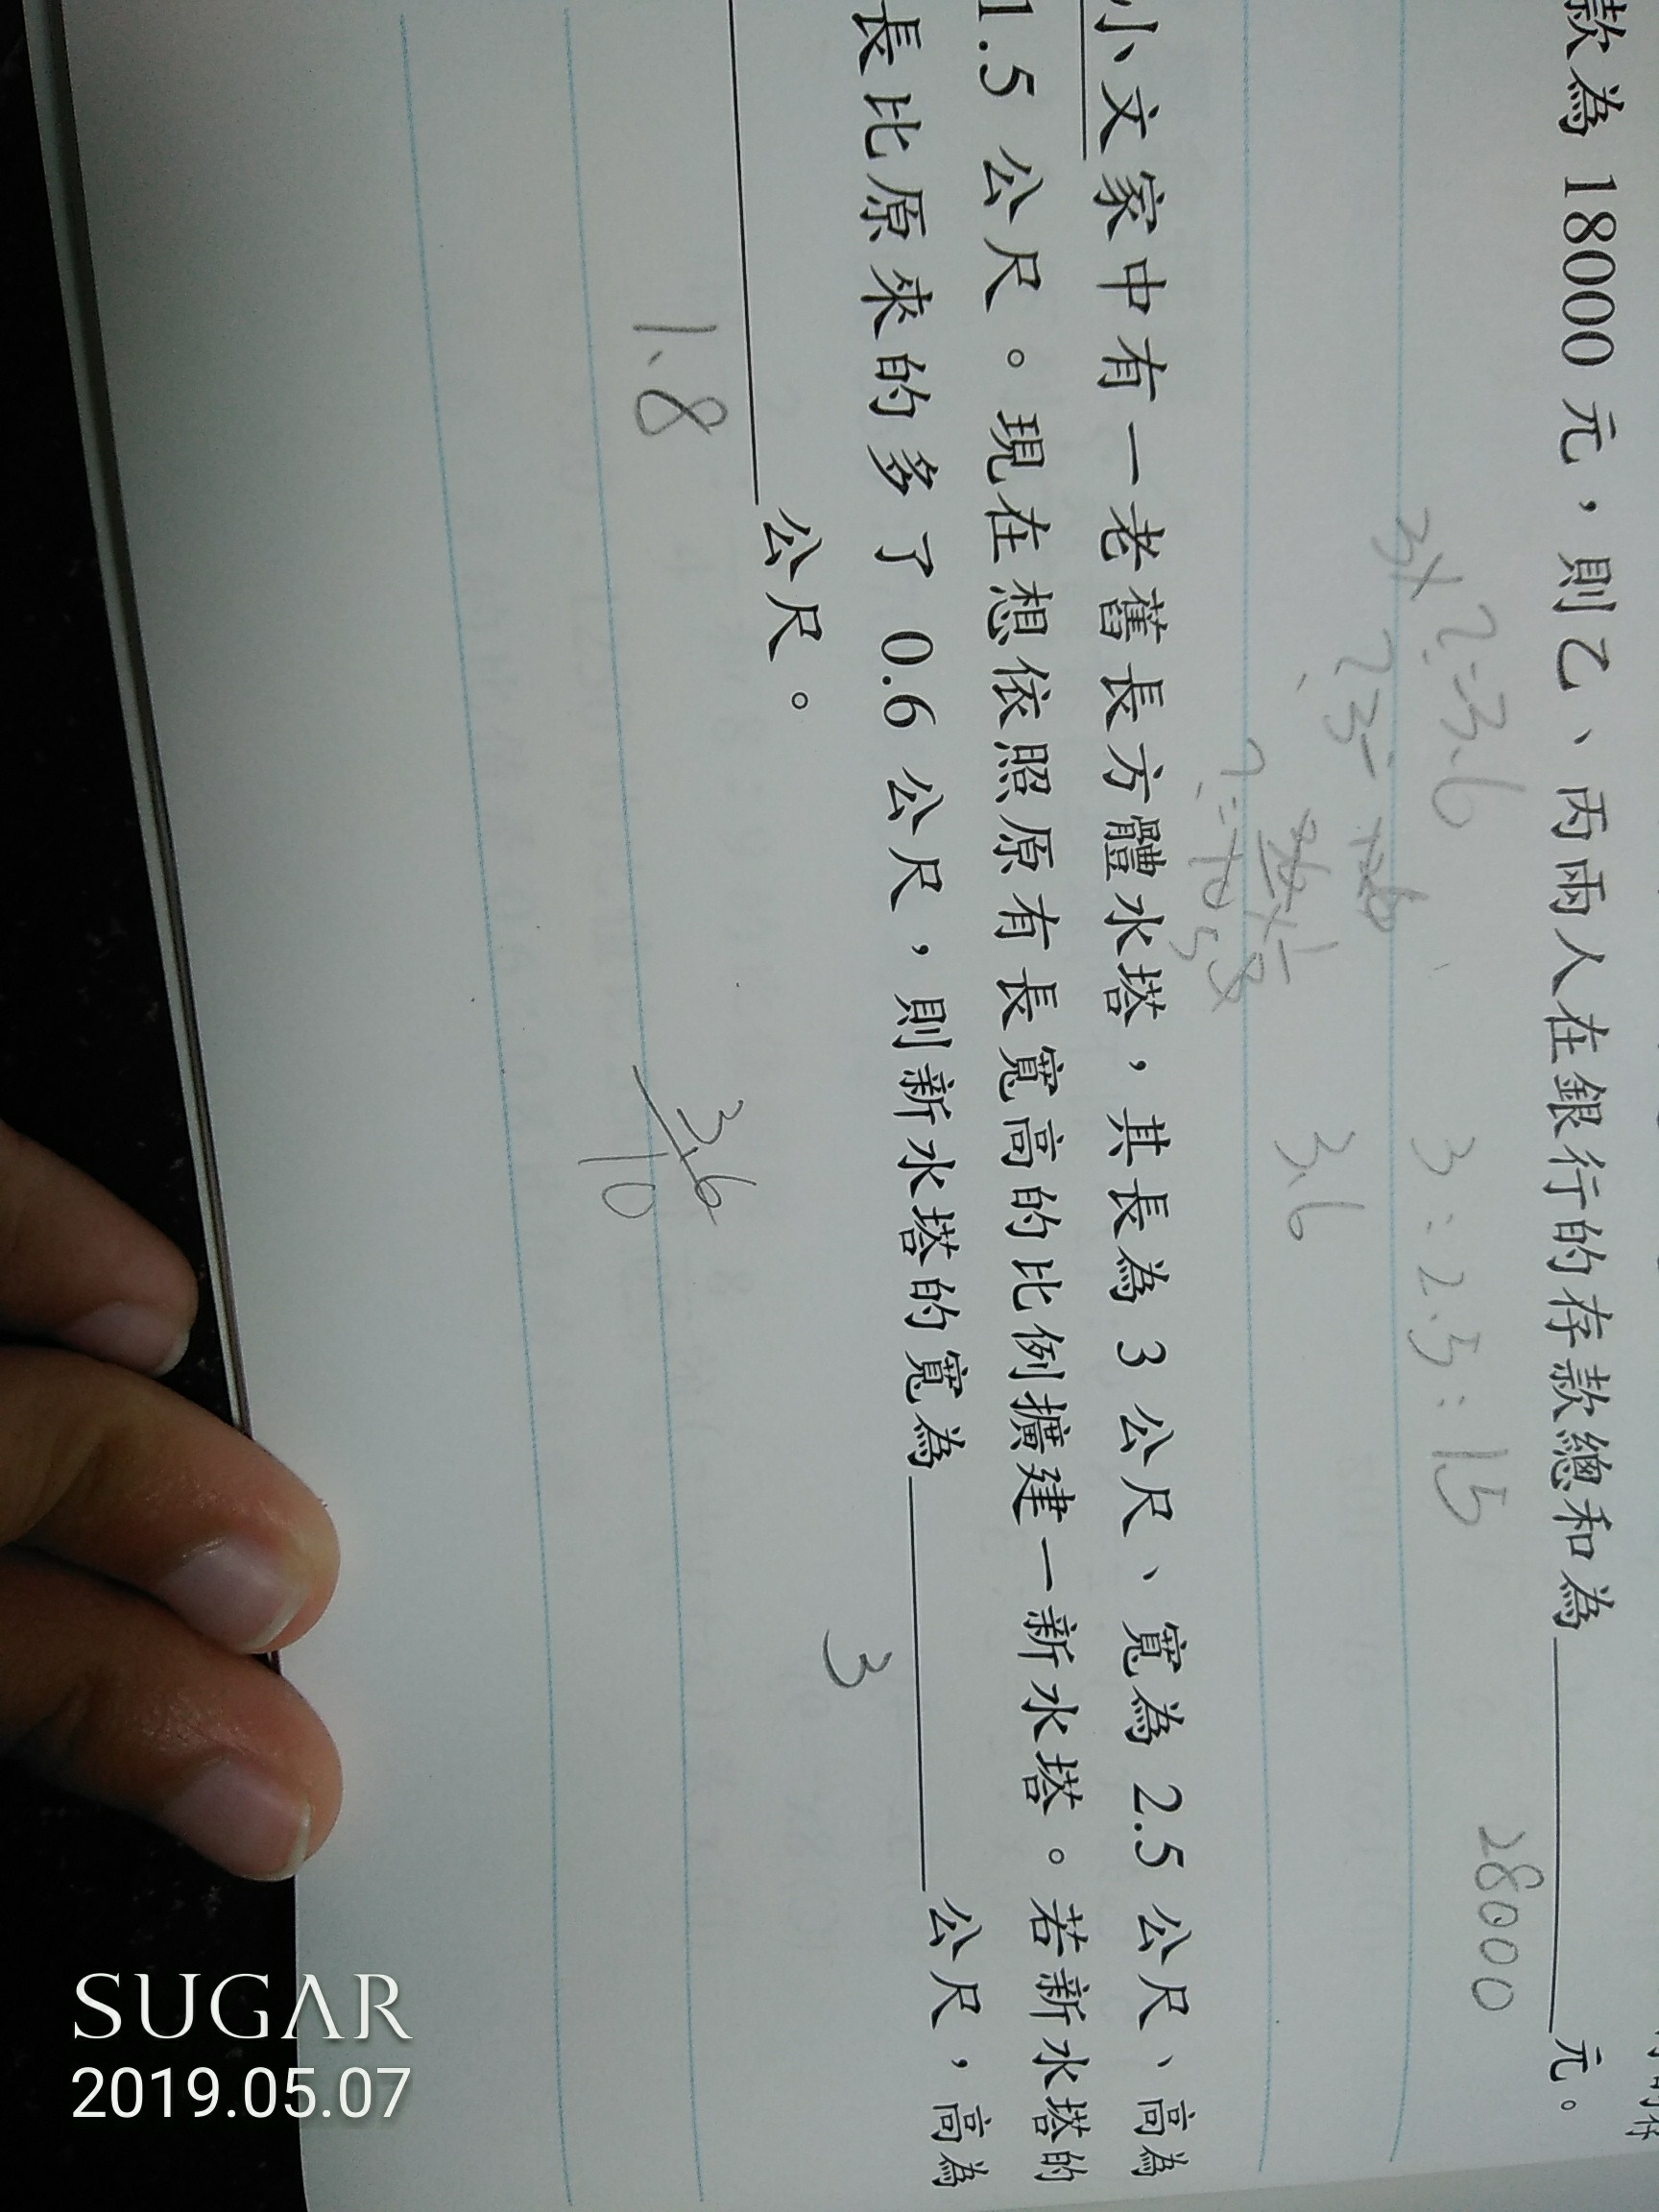 款為 18000 元，則乙、丙兩人在銀行的存款總和為 元。
28000
3x?=3.6
3:2.5:15
3.6
小文家中有一老舊長方體水塔，其長為 3 公尺、寬為 2.5 公尺、高為
1.5 公尺。現在想依照原有長寬高的比例擴建一新水塔。若新水塔的
長比原來的多了 0.6 公尺，則新水塔的寬為 公尺，高為
3
公尺。
1.8
3.6
10
SUGAR
2019.05.07